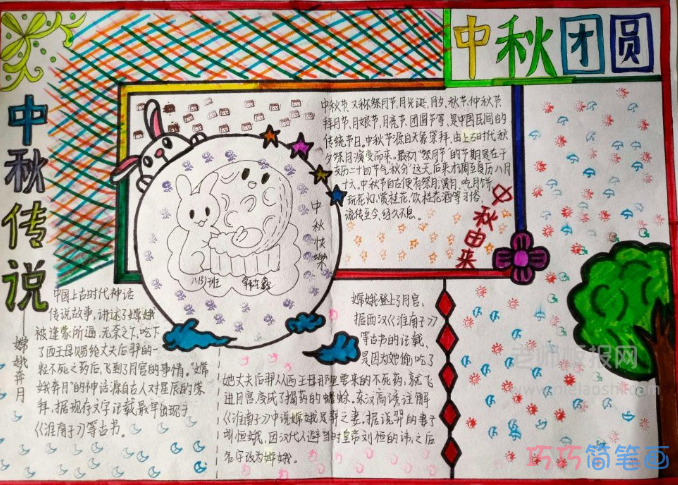 中秋团圆
中秋传说
——嫦娥奔月
中秋节又称祭月节、月光诞、月夕、秋节、仲秋节
拜月节、月娘节、月亮节、团圆节等,是中国民间的
传统节日。中秋节源自天象崇拜,由上古时代秋
夕祭月演变而来。最初“祭月节”的节期是在干
支历二十四节气“秋分”这天,后来才调至夏历八月
十五。中秋节自古便有祭月、赏月、吃月饼、
玩花灯、赏桂花、饮桂花酒等习俗,
流传至今,经久不息。
中秋由来
中秋快乐
八(1)班
中国上古时代神话
传说故事,讲述了嫦娥
被逢蒙所逼,无奈之下,吃下
了西王母赐给丈夫后羿的一
粒不死之药后,飞到了月宫的事情。“嫦
娥奔月”的神话源自古人对星辰的崇
拜,据现存文字记载最早出现于
《淮南子》等古书。
嫦娥登上了月宫,
据西汉《淮南子》
等古书的记载,
是因为她偷吃了
她丈夫后羿从西王母那里要来的不死药,就飞
进月宫,变成了捣药的蟾蜍。东汉高诱注解
《淮南子》中说嫦娥是羿之妻。据说羿的妻子
叫恒娥,因汉代人避当时皇帝刘恒的讳,之后
名字改为嫦娥。
老师板报网
巧巧简笔画